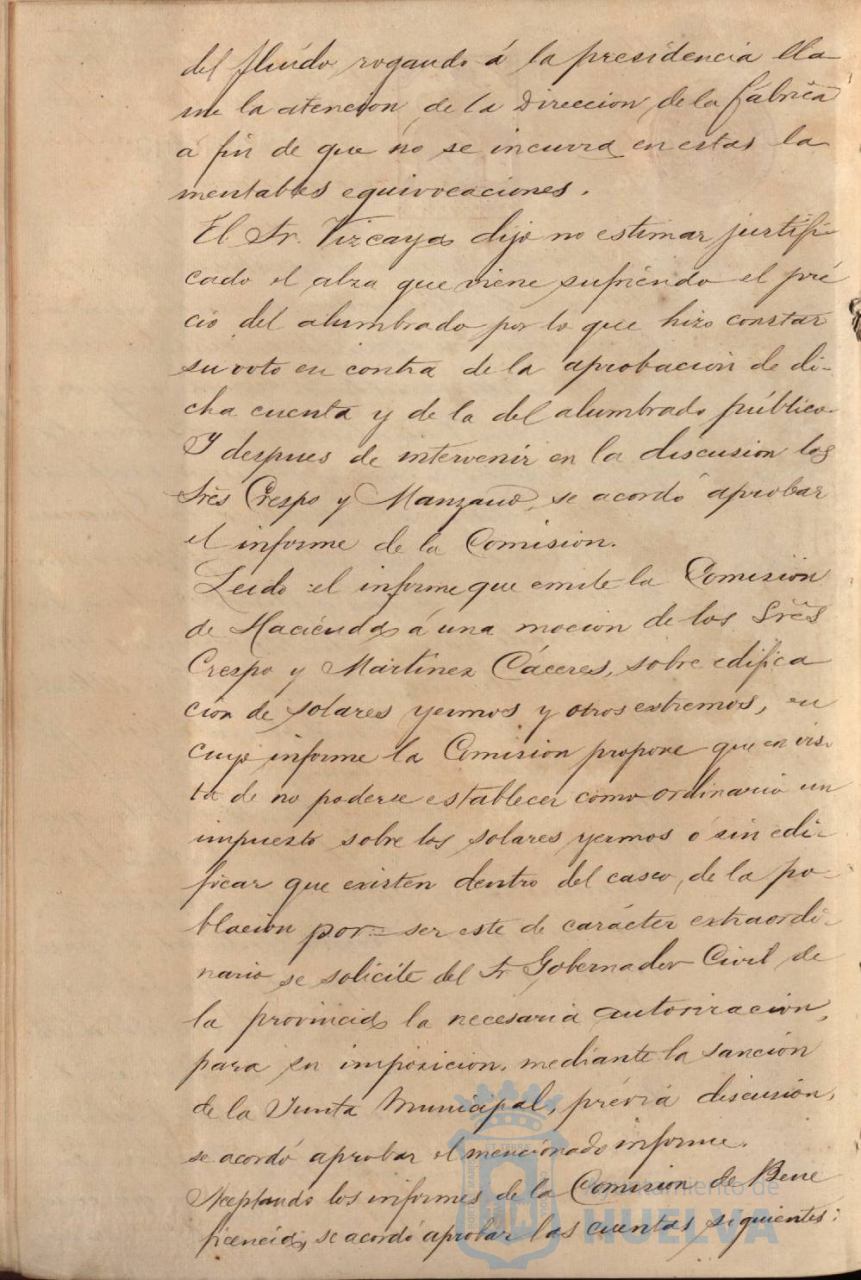 del fluído rogando á la presidencia lla-
me la atencion de la Direccion de la fábrica
á fin de que no se incurra en estas la
mentables equivocaciones.
El Sr. Vizcaya dijo no estimar justifi-
cado el alza que viene sufriendo el pré
cio del alumbrado por lo que hizo constar
su voto en contra de la aprobación de di-
cha cuenta y de la del alumbrado público.
Y despues de intervenir en la discusion los
Srēs Crespo y Manzano, se acordó aprobar
el informe de la Comision.
Leido el informe que emite la Comisión
de Haciénda á una mocion de los Srēs
Crespo y Martínez Cáceres, sobre edifica
ción de solares yermos y otros extremos, en
cuyo informe la Comision propone que en vis-
ta de no poderse establecer como ordinario un
impuesto sobre los solares yermos ó sin edi-
ficar que existen dentro del casco, de la po-
blación por = ser este de carácter extraordi-
nario se solicite del Sr Gobernador Civil de
la provincia la necesaria autorizacion,
para su imposicion, mediante la sanción
de la Junta Municipal, prévia discusion,
se acordó aprobar el mencionado informe.
Aceptando los informes de la Comision de Bene
ficencia, se acordó aprobar las cuentas siguientes:
Ayuntamiento de
HUELVA